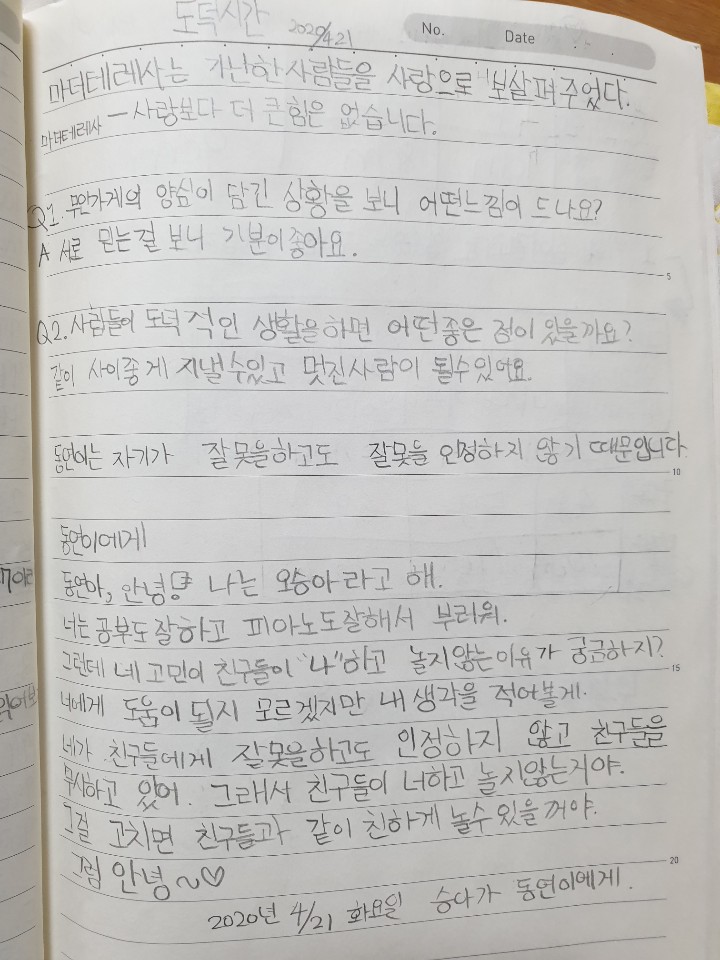 도덕시간 2020/4.21
No. Date
마더테레사는 가난한 사람들을 사랑으로 보살펴주었다.
마더테레사 - 사랑보다 더 큰힘은 없습니다.
Q1. 무인가게의 양심이 담긴 상황을 보니 어떤느낌이 드나요?
A 서로 믿는걸 보니 기분이좋아요.
5
Q2. 사람들이 도덕적인 생활을하면 어떤좋은 점이 있을까요?
같이 사이좋게 지낼수있고 멋진사람이 될수있어요.
동연이는 자기가 잘못을하고도 잘못을 인정하지 않기 때문입니다
10
동연이에게
동연아, 안녕? 나는 오승아라고 해.
너는 공부도잘하고 피아노도잘해서 부러워.
그런데 네 고민이 친구들이 "나"하고 놀지않는이유가 궁금하지?
15
너에게 도움이 될지 모르겠지만 내생각을 적어볼게.
네가 친구들에게 잘못을하고도 인정하지 않고 친구들을
무시하고 있어. 그래서 친구들이 너하고 놀지않는거야.
그걸 고치면 친구들과 같이 친하게 놀수 있을꺼야.
20
그럼 안녕~♡
2020년 4/21 화요일 승아가 동연이에게.